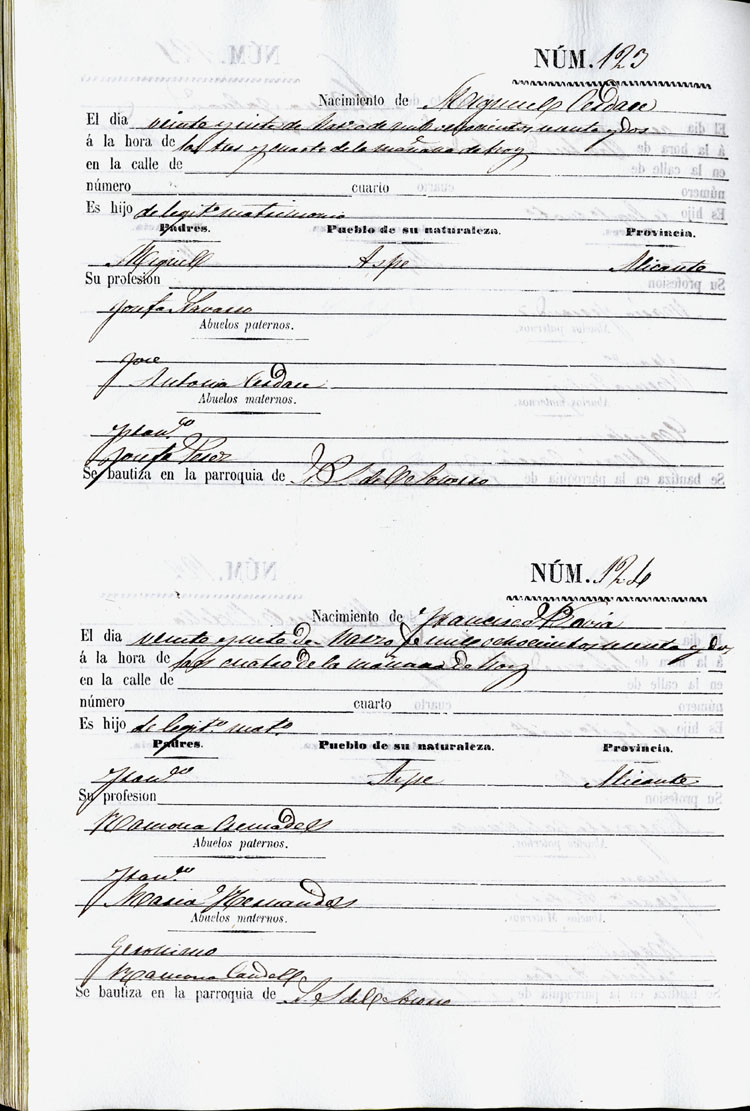 NÚM. 123
Nacimiento de Miguel Cerdan
El dia veinte y siete de Marzo de mil ochocientos y dos
á la hora de las tres y cuarto de la mañana de hoy
en la calle de
número cuarto
Es hijo de legit.º matrimonio
Padres. Pueblo de su naturaleza. Provincia.
Miguel Aspe Alicante
Su profesión
Josefa Navarro
Abuelos paternos.
José
Antonia Cerdan
Abuelos maternos.
Fran.co
Josefa Perez
Se bautiza en la parroquia de N. S. del Socorro
NÚM. 124
Nacimiento de Francisco
El dia veinte y siete de Marzo de mil ochocientos y dos
á la hora de las cuatro de la mañana de hoy
en la calle de
número cuarto
Es hijo de legit.º mat.º
Padres. Pueblo de su naturaleza. Provincia.
Fran.co Aspe Alicante
Su profesión
Ramona Cremades
Abuelos paternos.
Fran.co
Maria Hernandez
Abuelos maternos.
Geronimo
Ramona
Se bautiza en la parroquia de N. S. del Socorro